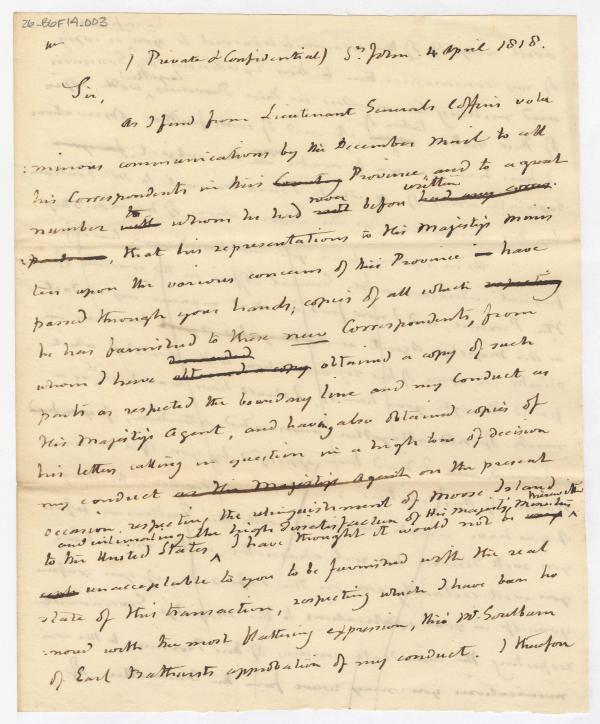 26-B6F14-003
(Private & Confidential) St John 4 April 1818.
Sir,
As I find from Lieutenant Generals Coffins volu
:minous communications by the December Mail to all
his Correspondents in this County Province, and to a great
number with to whom he had not never before had any corres written
:pondence, that his representations to His Majesty's Minis
ters upon the various concerns of this Province have
passed through your hands, copies of all which respecting
he has furnished to these new Correspondents, from
whom I have obtained a copy obtained a copy of such
parts as respected the boundary line and my Conduct as
His Majesty's Agent, and having also obtained copies of
his letters calling in question in a high tone of decision
my conduct as His Majesty's Agent on the present
occasion respecting the relinquishment of Moose Island
and intimating the high dissatisfaction of His Majesty's Ministers therewith
to the United States, I have thought it would not be
unacceptable to you to be furnished with the real
state of this transaction, respecting which I have been ho
:nored with the most flattering expression, thro' Mr. Goulburn
of Earl Bathursts approbation of my conduct. I therefore